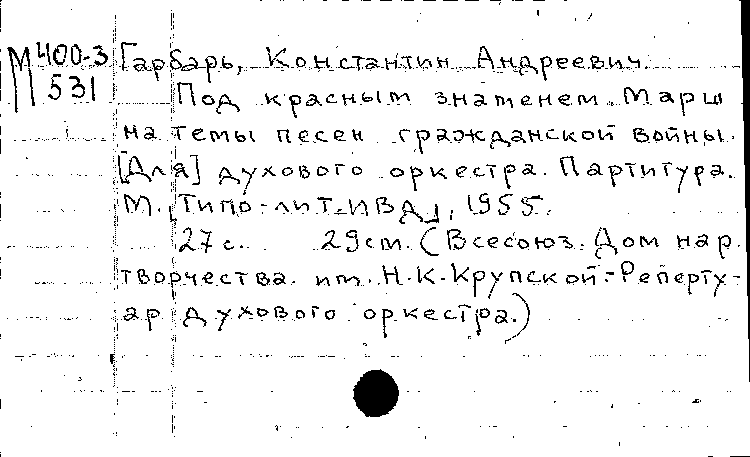 М 400-3 Гарбарь, Константин Андреевич.
531
Под красным знаменем. Марш
на темы песен гражданской войны.
[Для] духового оркестра. Партитура.
М. [Типо-лит. ИВА], 1955.
27 с. 29 см. (Всесоюз. Дом нар.
творчества им. Н. К. Крупской.- Реперту-
ар духового оркестра.)